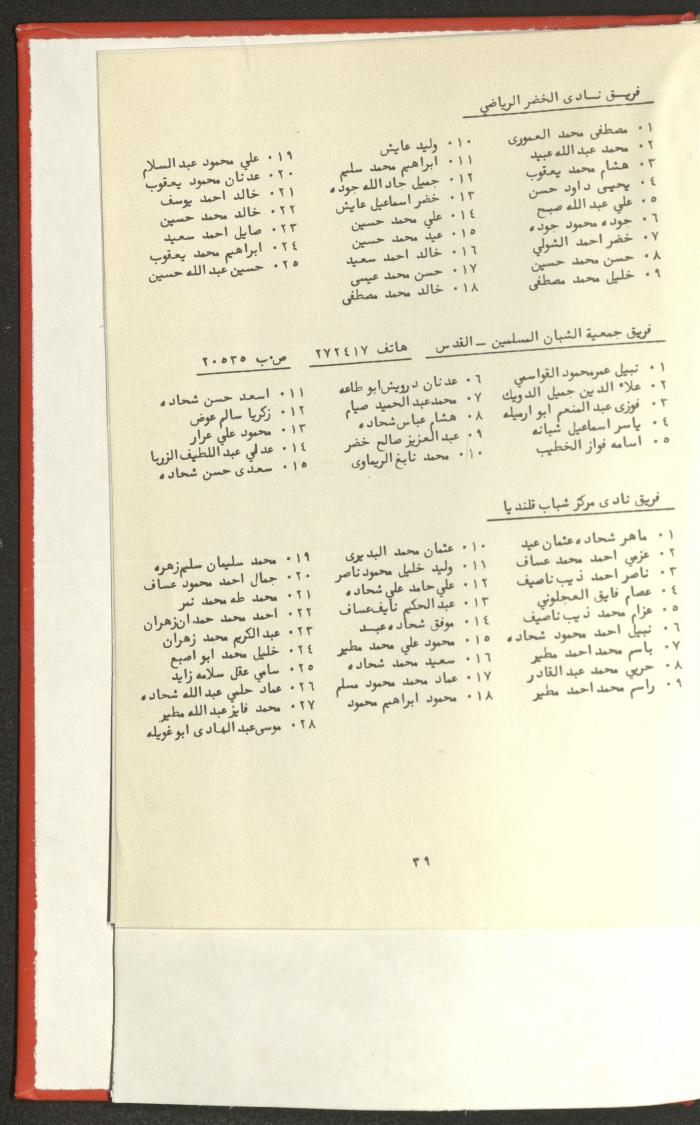 فريـق نـادى الخضر الرياضي
٠١ مصطفى محمد العمورى
٠٢ محمد عبد الله عبيد
٠٣ هشام محمد يعقوب
٠٤ يحيى داود حسن
٠٥ علي عبد الله صبح
٠٦ جوده محمود جوده
٠٧ خضر احمد الشولي
٠٨ حسن محمد حسين
٠٩ خليل محمد مصطفى
٠١٠ وليد عايش
٠١١ ابراهيم محمد سليم
٠١٢ جميل جاد الله جوده
٠١٣ خضر اسماعيل عايش
٠١٤ علي محمد حسين
٠١٥ عيد محمد حسين
٠١٦ خالد احمد سعيد
٠١٧ حسن محمد عيسى
٠١٨ خالد محمد مصطفى
٠١٩ علي محمود عبد السلام
٠٢٠ عدنان محمود يعقوب
٠٢١ خالد احمد يوسف
٠٢٢ خالد محمد حسين
٠٢٣ صايل احمد سعيد
٠٢٤ ابراهيم محمد يعقوب
٠٢٥ حسين عبد الله حسين
فريق جمعية الشبان المسلمين ـ القدس هاتف ٢٧٢٤١٧ ص.ب ٢٠٥٣٥
٠١ نبيل عمر محمود القواسمي
٠٢ علاء الدين جميل الدويك
٠٣ فوزى عبد المنعم ابو ارميله
٠٤ ياسر اسماعيل شبانه
٠٥ اسامه فواز الخطيب
٠٦ عدنان درويش ابو طاعه
٠٧ محمد عبد الحميد صيام
٠٨ هشام عباس شحاده
٠٩ عبد العزيز صالح خضر
٠١٠ محمد نابغ الريماوى
٠١١ اسعد حسن شحاده
٠١٢ زكريا سالم عوض
٠١٣ محمود علي عرار
٠١٤ عدلي عبد اللطيف الزربا
٠١٥ سعدى حسن شحاده
فريق نادى مركز شباب قلنديا
٠١ ماهر شحاده عثمان عيد
٠٢ عزمي احمد محمد عساف
٠٣ ناصر احمد ذيب ناصيف
٠٤ عصام فايق العجلوني
٠٥ عزام محمد ذيب ناصيف
٠٦ نبيل احمد محمود شحاده
٠٧ باسم محمد احمد مطير
٠٨ حربي محمد عبد القادر
٠٩ راسم محمد احمد مطير
٠١٠ عثمان محمد البديرى
٠١١ وليد خليل محمود ناصر
٠١٢ علي حامد علي شحاده
٠١٣ عبد الحكيم نايف عساف
٠١٤ موفق شحاده عبـد
٠١٥ محمود علي محمد مطير
٠١٦ سعيد محمد شحاده
٠١٧ عماد محمد محمود مسلم
٠١٨ محمود ابراهيم محمود
٠١٩ محمد سليمان سليم زهره
٠٢٠ جمال احمد محمود عساف
٠٢١ محمد طه محمد نمر
٠٢٢ احمد محمد حمدان زهران
٠٢٣ عبد الكريم محمد زهران
٠٢٤ خليل محمد ابو اصبع
٠٢٥ سامي عقل سلامه زايد
٠٢٦ عماد حلمي عبد الله شحاده
٠٢٧ محمد فايز عبد الله مطير
٠٢٨ موسى عبد الهادى ابو غويله
٣٩